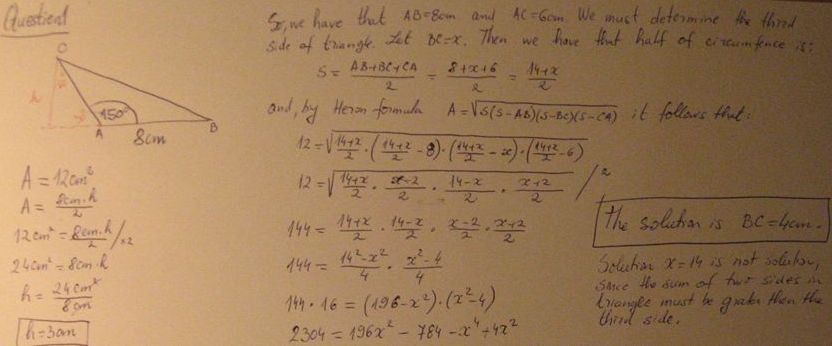 Question1
C
h
150°
A
B
8cm
A = 12cm²
A = 8cm·h/2
12cm² = 8cm·h/2 /×2
24cm² = 8cm·h
h = 24cm²/8cm
h=3cm
So, we have that AB=8cm and AC=6cm. We must determine the third
side of triangle. Let BC=x. Then we have that half of circumfence is:
S = AB+BC+CA/2 = 8+x+6/2 = 14+x/2
and, by Heron formula A=√S(S-AB)(S-BC)(S-CA) it follows that:
12=√14+x/2 · (14+x/2 - 8) · (14+x/2 - x) · (14+x/2 - 6)
12=√14+x/2 · x-2/2 · 14-x/2 · x+2/2 /²
144 = 14+x/2 · 14-x/2 · x-2/2 · x+2/2
144 = 14²-x²/4 · x²-4/4
144·16 = (196-x²)·(x²-4)
2304 = 196x² - 784 - x⁴ + 4x²
The solution is BC=4cm.
Solution x=14 is not solution,
since the sum of two sides in
triangle must be grater then the
third side.